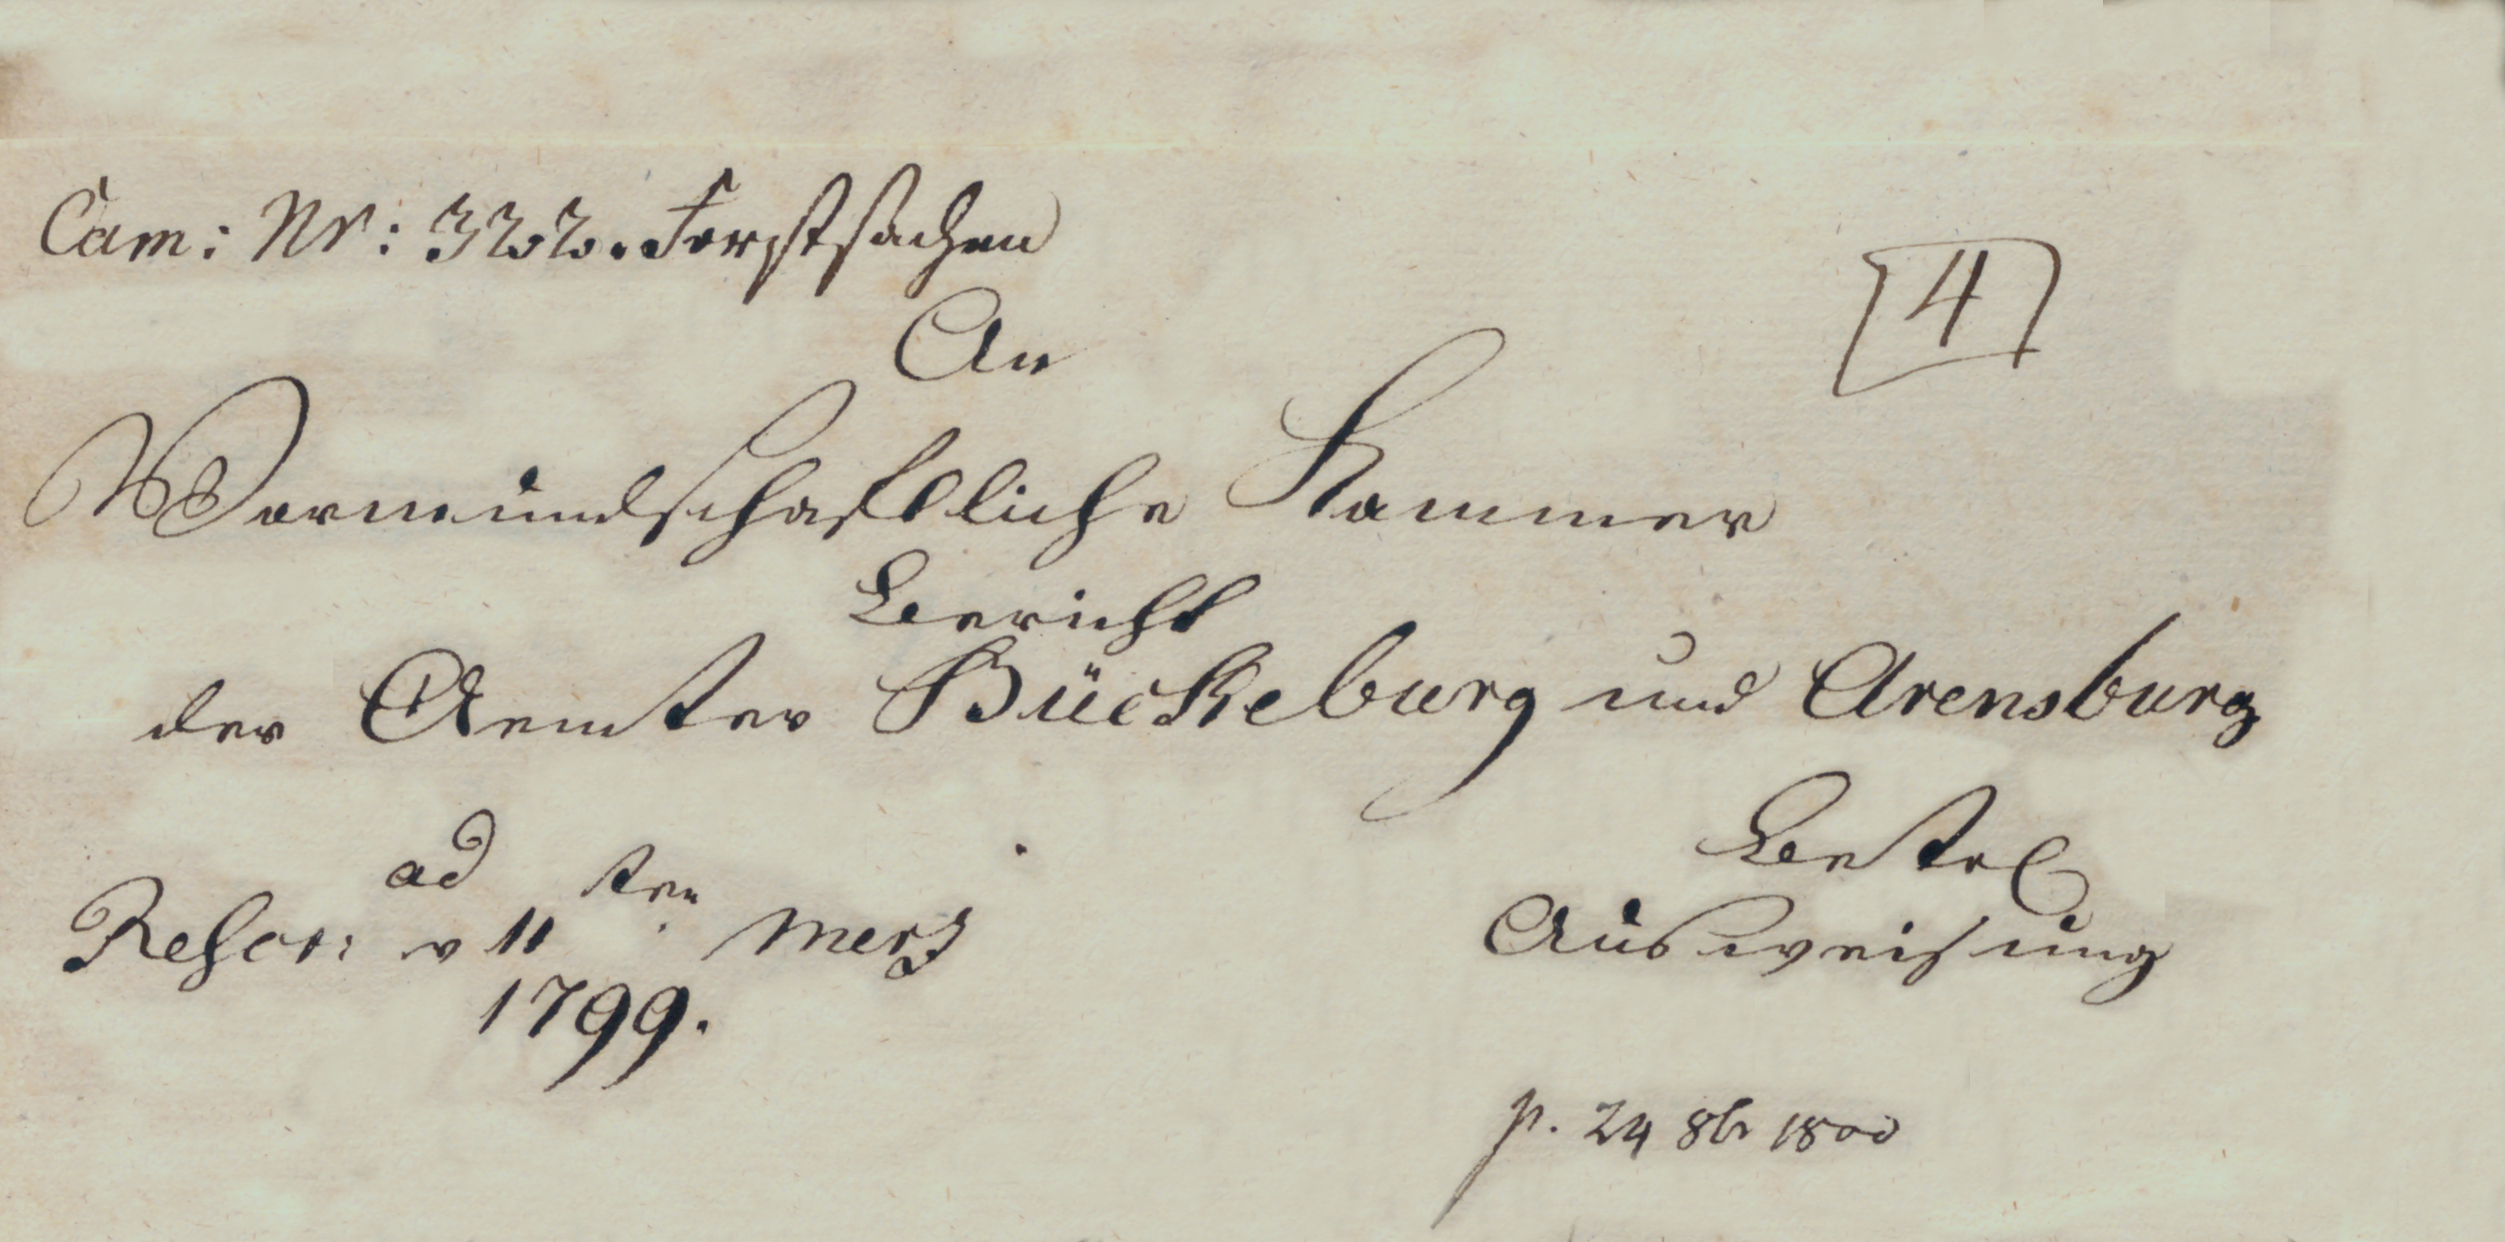 Cam: Nr: 322. Forstsachen
4
An
Vormundschaftliche Kammer
Bericht
der Aemter Bückeburg und Arensburg
ad
Rescr: v 11ten Merz
1799.
Betr
Ausweisung
p. 24 8br 1800